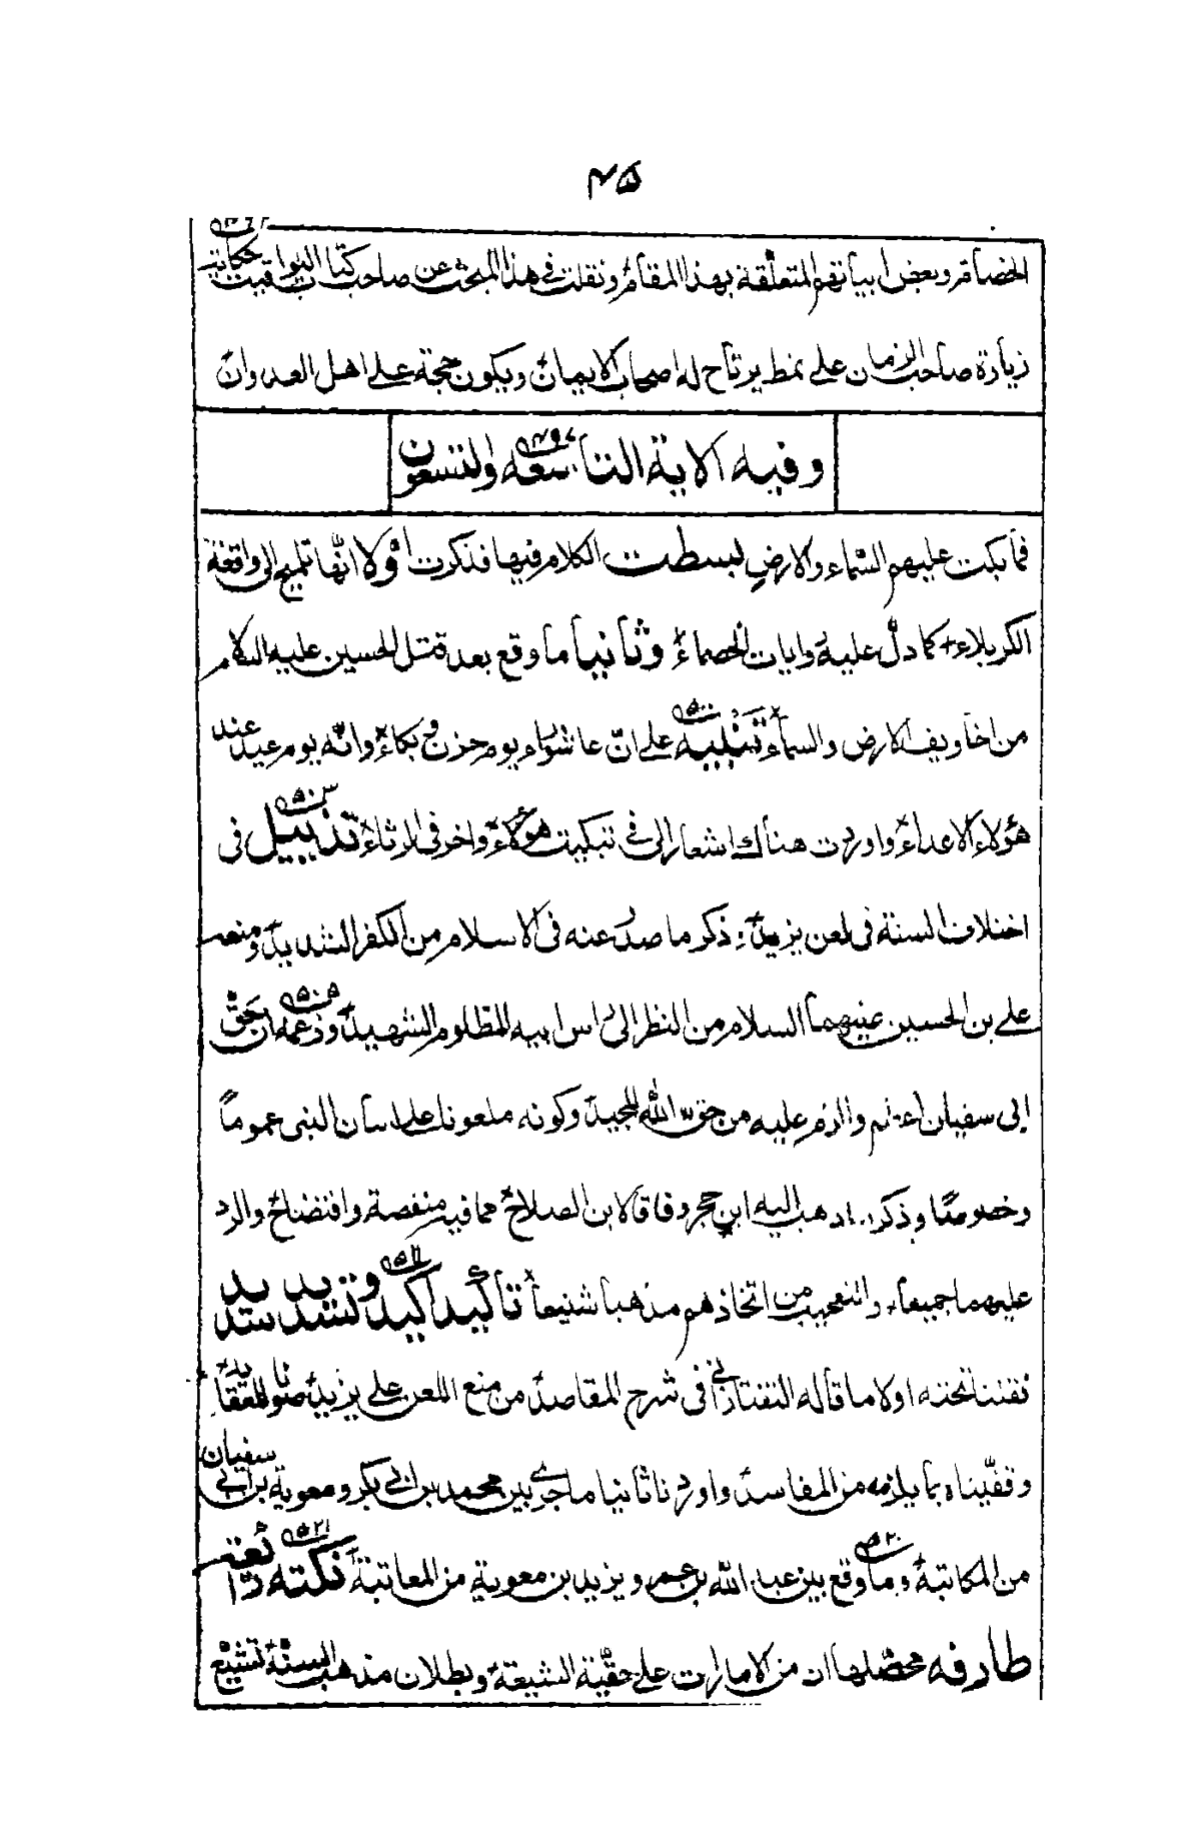 ۴۵
الخضام وبعض ابياتهم المتعلقة بهذا المقام ونقلت فى هذا المبحث عن صاحب كتاب اليواقيت حكاية
زيارة صاحب الزمان على نمط يرتاح له اصحاب الايمان ويكون حجة على اهل العدوان
وفيه الاية التاسعة والتسعون
فما بكت عليهم السماء والارض لبسطت الكلام فيها فذكرت اولا انها تلميح الى واقعة
الكربلاء كما دل عليه روايات الخصماء وثانيا ما وقع بعد قتل الحسين عليه السلام
من اخاويف الارض والسماء تنبيه على ان عاشوراء يوم حزن وبكاء وانه يوم عيد عند
هؤلاء الاعداء واوردت هناك اشعارا لى فى تبكيت هؤلاء واخر فى الرثاء تذييل فى
اختلاف السنة فى لعن يزيد وذكر ما صدر عنه فى الاسلام من الكفر الشديد ومنعه
على بن الحسين عليهما السلام من النظر الى راس ابيه المظلوم الشهيد وزعمه ان حق
ابى سفيان اعظم والزم عليه من حق الله المجيد وكونه ملعونا على لسان النبى عموما
وخصوصا وذكر ما ذهب اليه ابن حجر وفاقا لابن الصلاح مما فيه منقصة وافتضاح والرد
عليهما جميعا والتعجيب من اتخاذهم مذهبا شنيعا تأكيد اكيد وتشديد سديد
نقلنا تحته اولا ما قاله التفتازانى فى شرح المقاصد من منع اللعن على يزيد صونا للعقائد
وقفيناه بما يلزمه من المفاسد واوردنا ثانيا ما جرى بين محمد بن ابى بكر ومعوية بن ابى سفيان
من المكاتبة وما وقع بين عبد الله بن عمر ويزيد بن معوية من المعاتبة نكتة
طارفه محصلها ان من الامارات على حقية الشيعة وبطلان مذهب السنة تشنيع